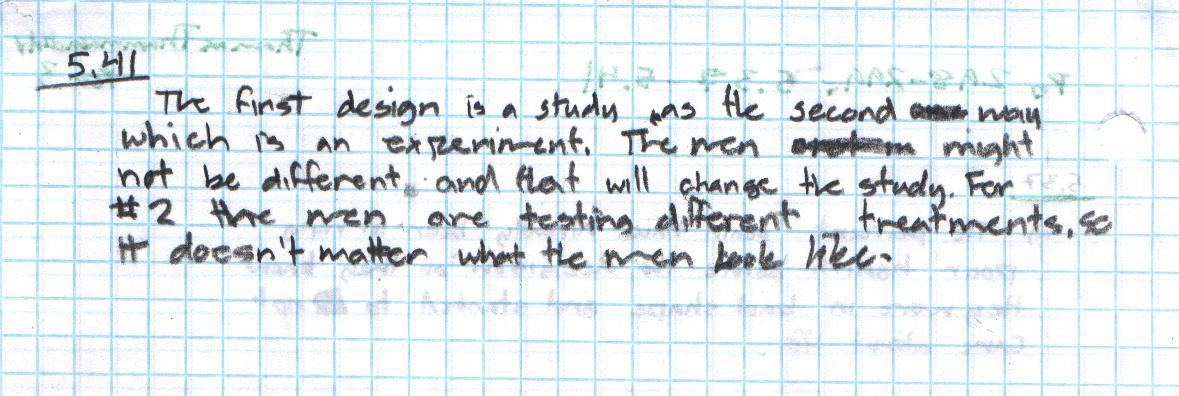 5.41
The first design is a study, as the second way
which is an experiment. The men might
not be different, and that will change the study. For
#2 the men are testing different treatments, so
it doesn't matter what the men look like.